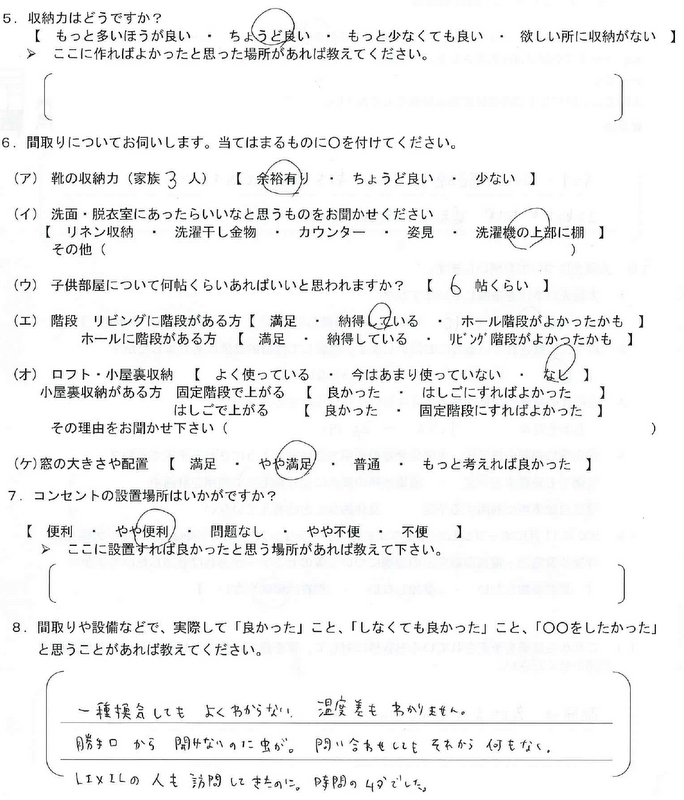 5．収納力はどうですか？
【　もっと多いほうが良い　・　ちょうど良い　・　もっと少なくても良い　・　欲しい所に収納がない　】
➢　ここに作ればよかったと思った場所があれば教えてください。
6．間取りについてお伺いします。当てはまるものに〇を付けてください。
（ア）靴の収納力（家族 3 人）　【　余裕有り　・　ちょうど良い　・　少ない　】
（イ）洗面・脱衣室にあったらいいなと思うものをお聞かせください
【　リネン収納　・　洗濯干し金物　・　カウンター　・　姿見　・　洗濯機の上部に棚　】
その他（　　　　　　　　　　）
（ウ）子供部屋について何帖くらいあればいいと思われますか？　【　6　帖くらい　】
（エ）階段　リビングに階段がある方【　満足　・　納得している　・　ホール階段がよかったかも　】
ホールに階段がある方　【　満足　・　納得している　・　ﾘﾋﾞﾝｸﾞ階段がよかったかも　】
（オ）ロフト・小屋裏収納　【　よく使っている　・　今はあまり使っていない　・　なし　】
小屋裏収納がある方　固定階段で上がる　【　良かった　・　はしごにすればよかった　】
はしごで上がる　【　良かった　・　固定階段にすればよかった　】
その理由をお聞かせ下さい（　　　　　　　　　　）
（ケ）窓の大きさや配置　【　満足　・　やや満足　・　普通　・　もっと考えれば良かった　】
７．コンセントの設置場所はいかがですか？
【　便利　・　やや便利　・　問題なし　・　やや不便　・　不便　】
➢　ここに設置すれば良かったと思う場所があれば教えて下さい。
８．間取りや設備などで、実際して「良かった」こと、「しなくても良かった」こと、「〇〇をしたかった」
と思うことがあれば教えてください。
一種換気しても よくわからない 温度差も わかりません。
勝手口 から 開かないのに虫が。 問い合わせしても それから 何もなく。
LIXILの 人も 訪問してきたのに。 時間の ムダでした。